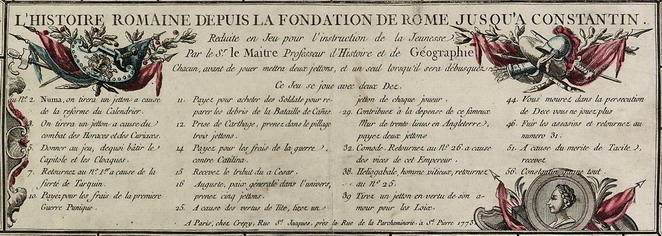 L'HISTOIRE ROMAINE DEPUIS LA FONDATION DE ROME JUSQU'A CONSTANTIN.
Reduite en Jeu pour l'instruction de la Jeunesse
Par le Sr. le Maitre Professeur d'Histoire et de Géographie
Chacun, avant de jouer mettra deux jettons, et un seul lorsqu'il sera débusqué
Ce Jeu se joue avec deux Dez.
au No. 2. Numa, on tirera un jetton a cause
de la reforme du Calendrier.
3. On tirera un jetton a cause du
combat des Horaces et des Curiaces.
5. Donner au jeu, dequoi bâtir le
Capitole et les Cloaques.
7. Retournez au No. 1er a cause de la
fierté de Tarquin.
10. Payez pour les frais de la premiere
Guerre Punique.
11. Payez pour acheter des Soldats pour re-
parer les debris de la Bataille de Canes.
12. Prise de Carthage, prenez dans le pillage
trois jettons.
14. Payez pour les frais de la guerre
contre Catilina.
15. Recevez le tribut du a Cesar.
16. Auguste, paix generale dans l'univers,
prenez cinq jettons.
25. A cause des vertus de Tite, tirez un
jetton de chaque joueur.
29. Contribuez a la depense de ce fameux
Mur de trente lieues en Angleterre,
payez deux jettons
32. Comode. Retournez au No. 26. a cause
des vices de cet Empereur.
38. Heliogabale, homme vitieux, retournez
au No. 25.
39. Tirez un jetton en vertu de son a-
mour pour les Loix.
44. Vous mourez dans la persecution
de Dece vous ne jouez plus
46. Fuir les assassins et retournez au
numero 31.
51. A cause du merite de Tacite,
recevez
56. Constantin gagne tout
A Paris, chez Crepy, Rue St. Jaques, près la Rue de la Parcheminerie, à St. Pierre